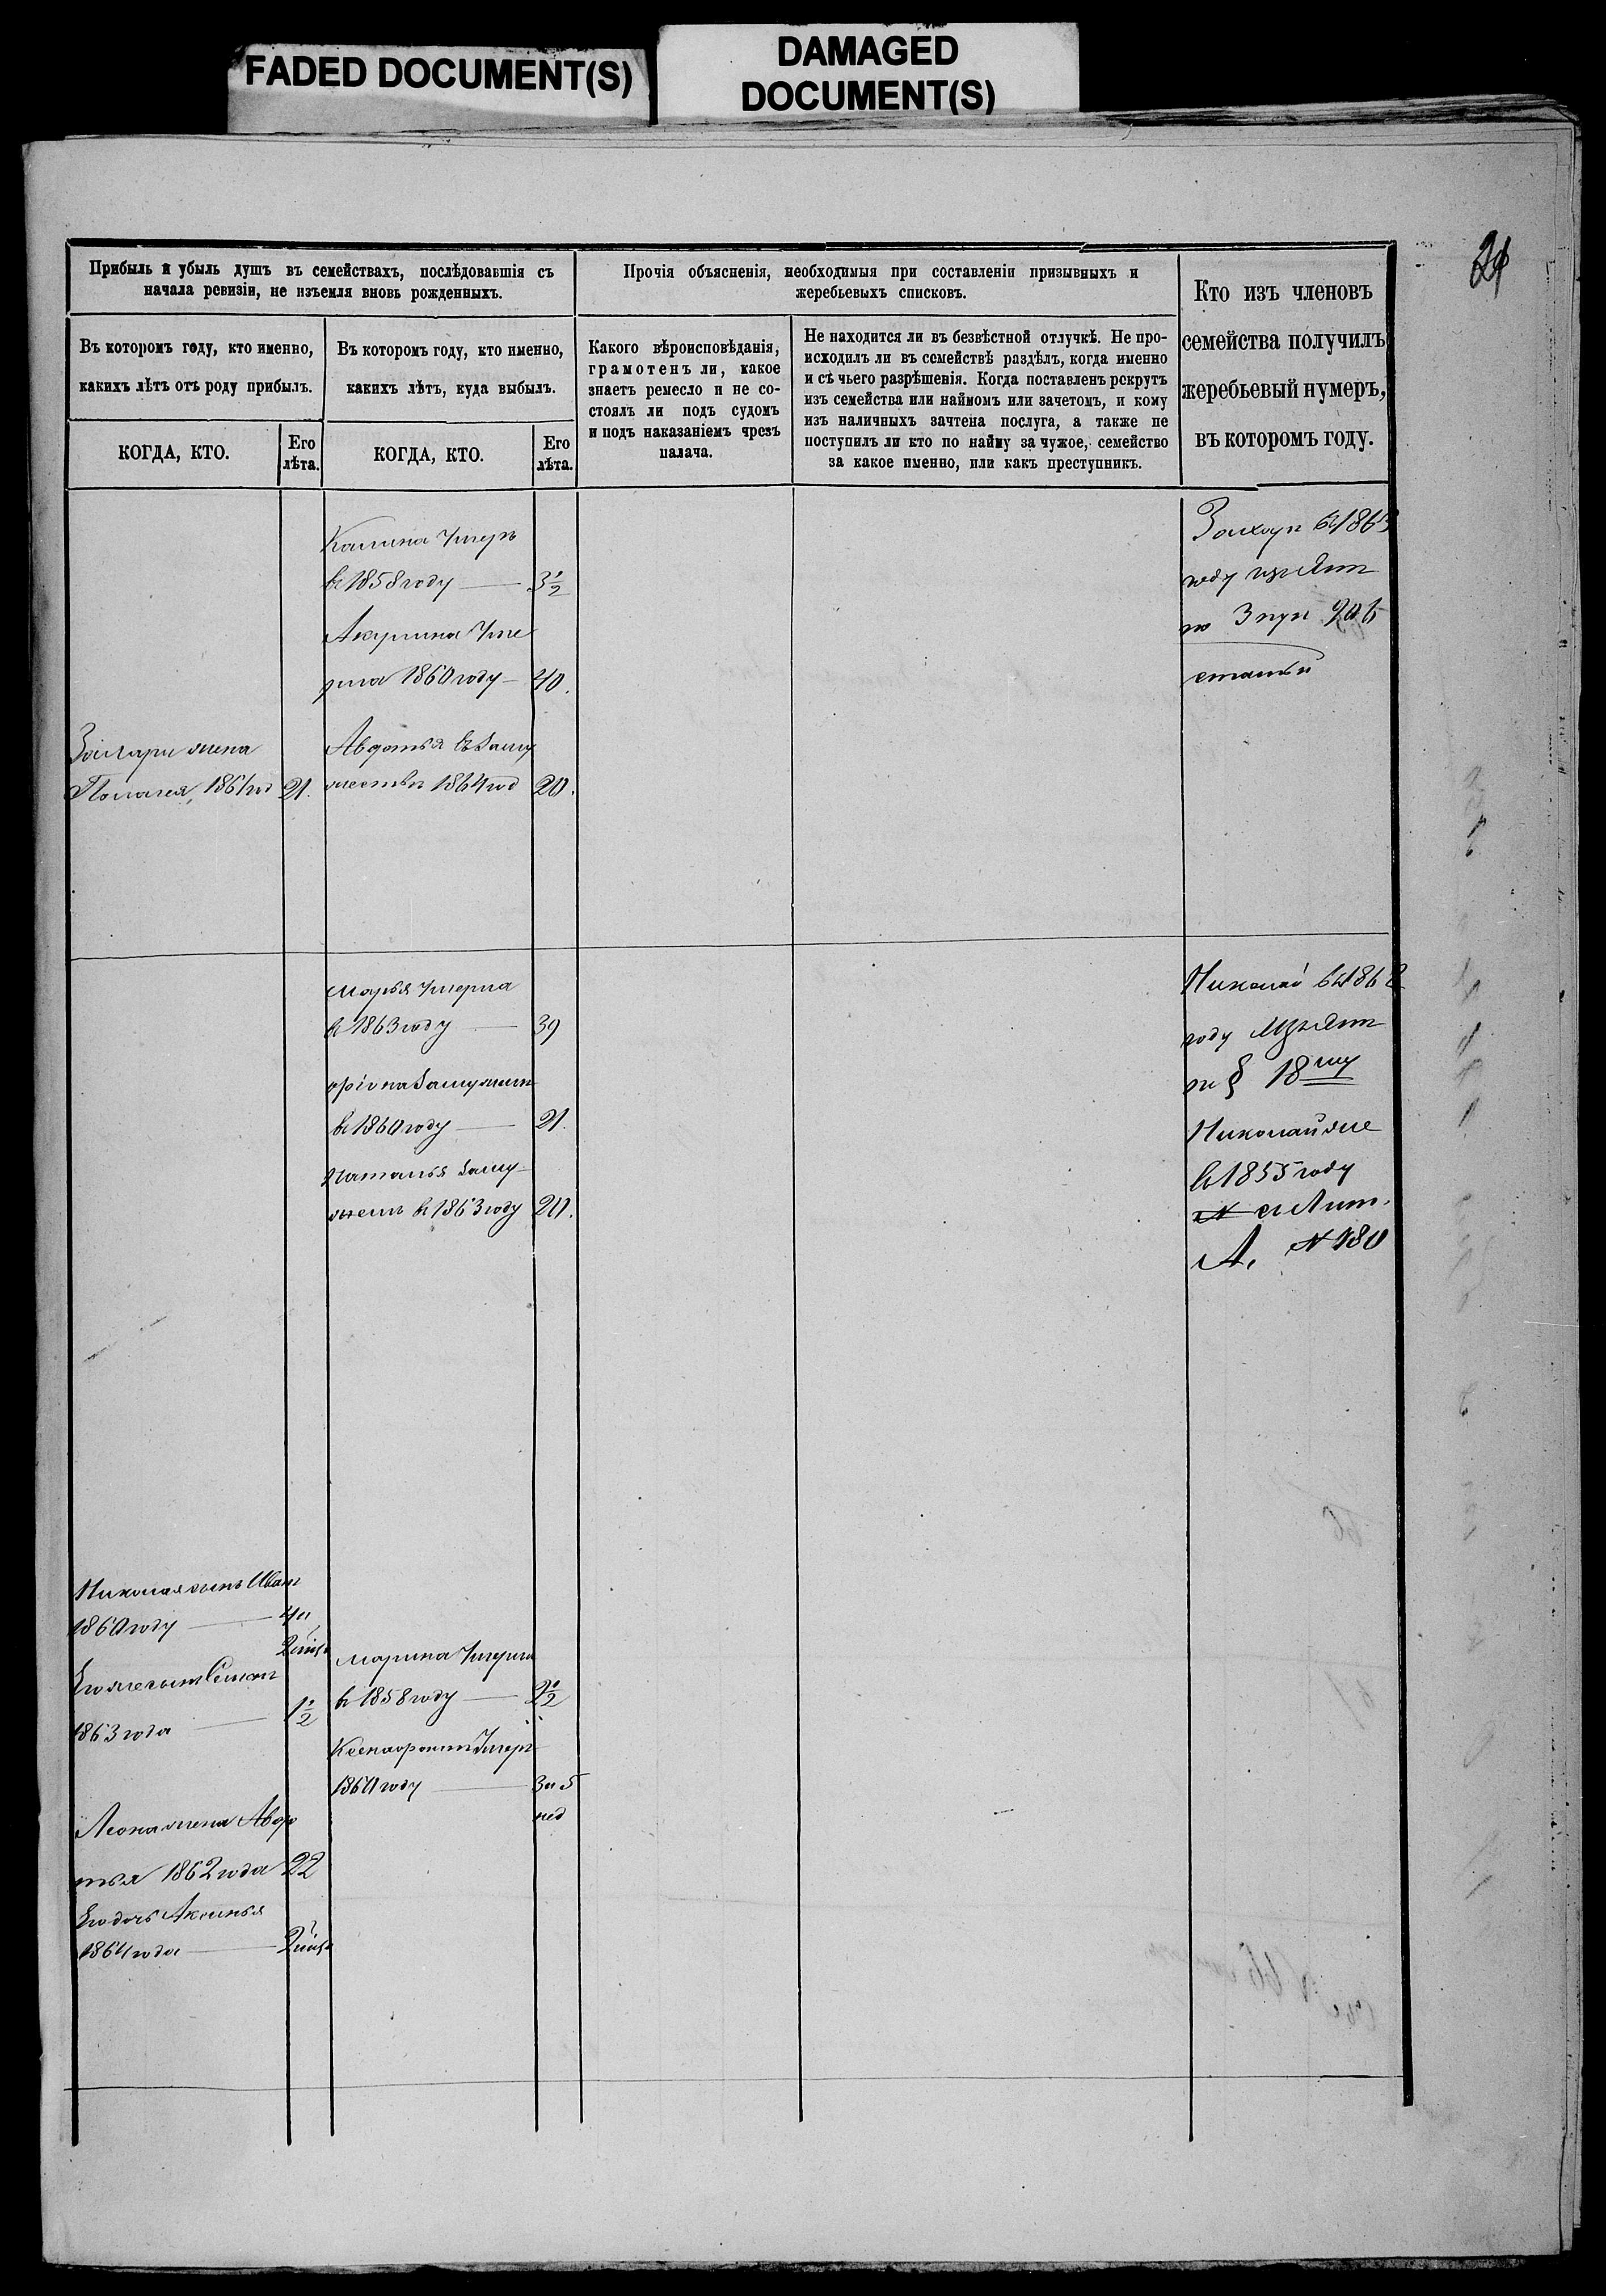 FADED DOCUMENT(S)
DAMAGED
DOCUMENT(S)
Прибыль и убыль душъ въ семействахъ, послѣдовавшія съ
начала ревизіи, не изъемля вновь рожденныхъ.
Въ которомъ году, кто именно,
какихъ лѣтъ отъ роду прибылъ.
КОГДА, КТО.
Его
лѣта.
Въ которомъ году, кто именно,
какихъ лѣтъ, куда выбылъ.
КОГДА, КТО.
Его
лѣта.
Прочія объясненія, необходимыя при составленіи призывныхъ и
жеребьевыхъ списковъ.
Какого вѣроисповѣданія,
грамотенъ ли, какое
знаетъ ремесло и не со-
стоялъ ли подъ судомъ
и подъ наказаніемъ чрезъ
палача.
Не находится ли въ безвѣстной отлучкѣ. Не про-
исходилъ ли въ семействѣ раздѣлъ, когда именно
и съ чьего разрѣшенія. Когда поставленъ рекрутъ
изъ семейства или наймомъ или зачетомъ, и кому
изъ наличныхъ зачтена послуга, а также не
поступилъ ли кто по найму за чужое, семейство
за какое именно, или какъ преступникъ.
Кто изъ членовъ
семейства получилъ
жеребьевый нумеръ,
въ которомъ году.
Калина умеръ
въ 1858 году — 3½
Акулина уме
рла 1860 году — 40.
Захаръ въ 1863
году изъят
по 3 пун 206
статьи
Захара жена
Пелагея, 1861 год 21.
Авдотья въ заму
жествѣ 1864 год 20.
Марья умерла
в 1863 году — 39
въ 1860 году — 21.
Наталья заму-
жем в 1863 году 20.
Николай в 1868
году Изъят
по § 18му
Николай же
в 1855 году
с Лит.
А. № 180
Николая сынъ Иванъ
1860 году — 4 и
2 мѣс
Его же сынъ Семенъ
1863 года — 1½
Марина умерла
в 1858 году — 2½
Ксенофонтъ умеръ
1860 году — 3 и 5
нед
Леона жена Авдо
тья 1862 года 22
Его дочь Аксинья
1864 года — 2 мѣс